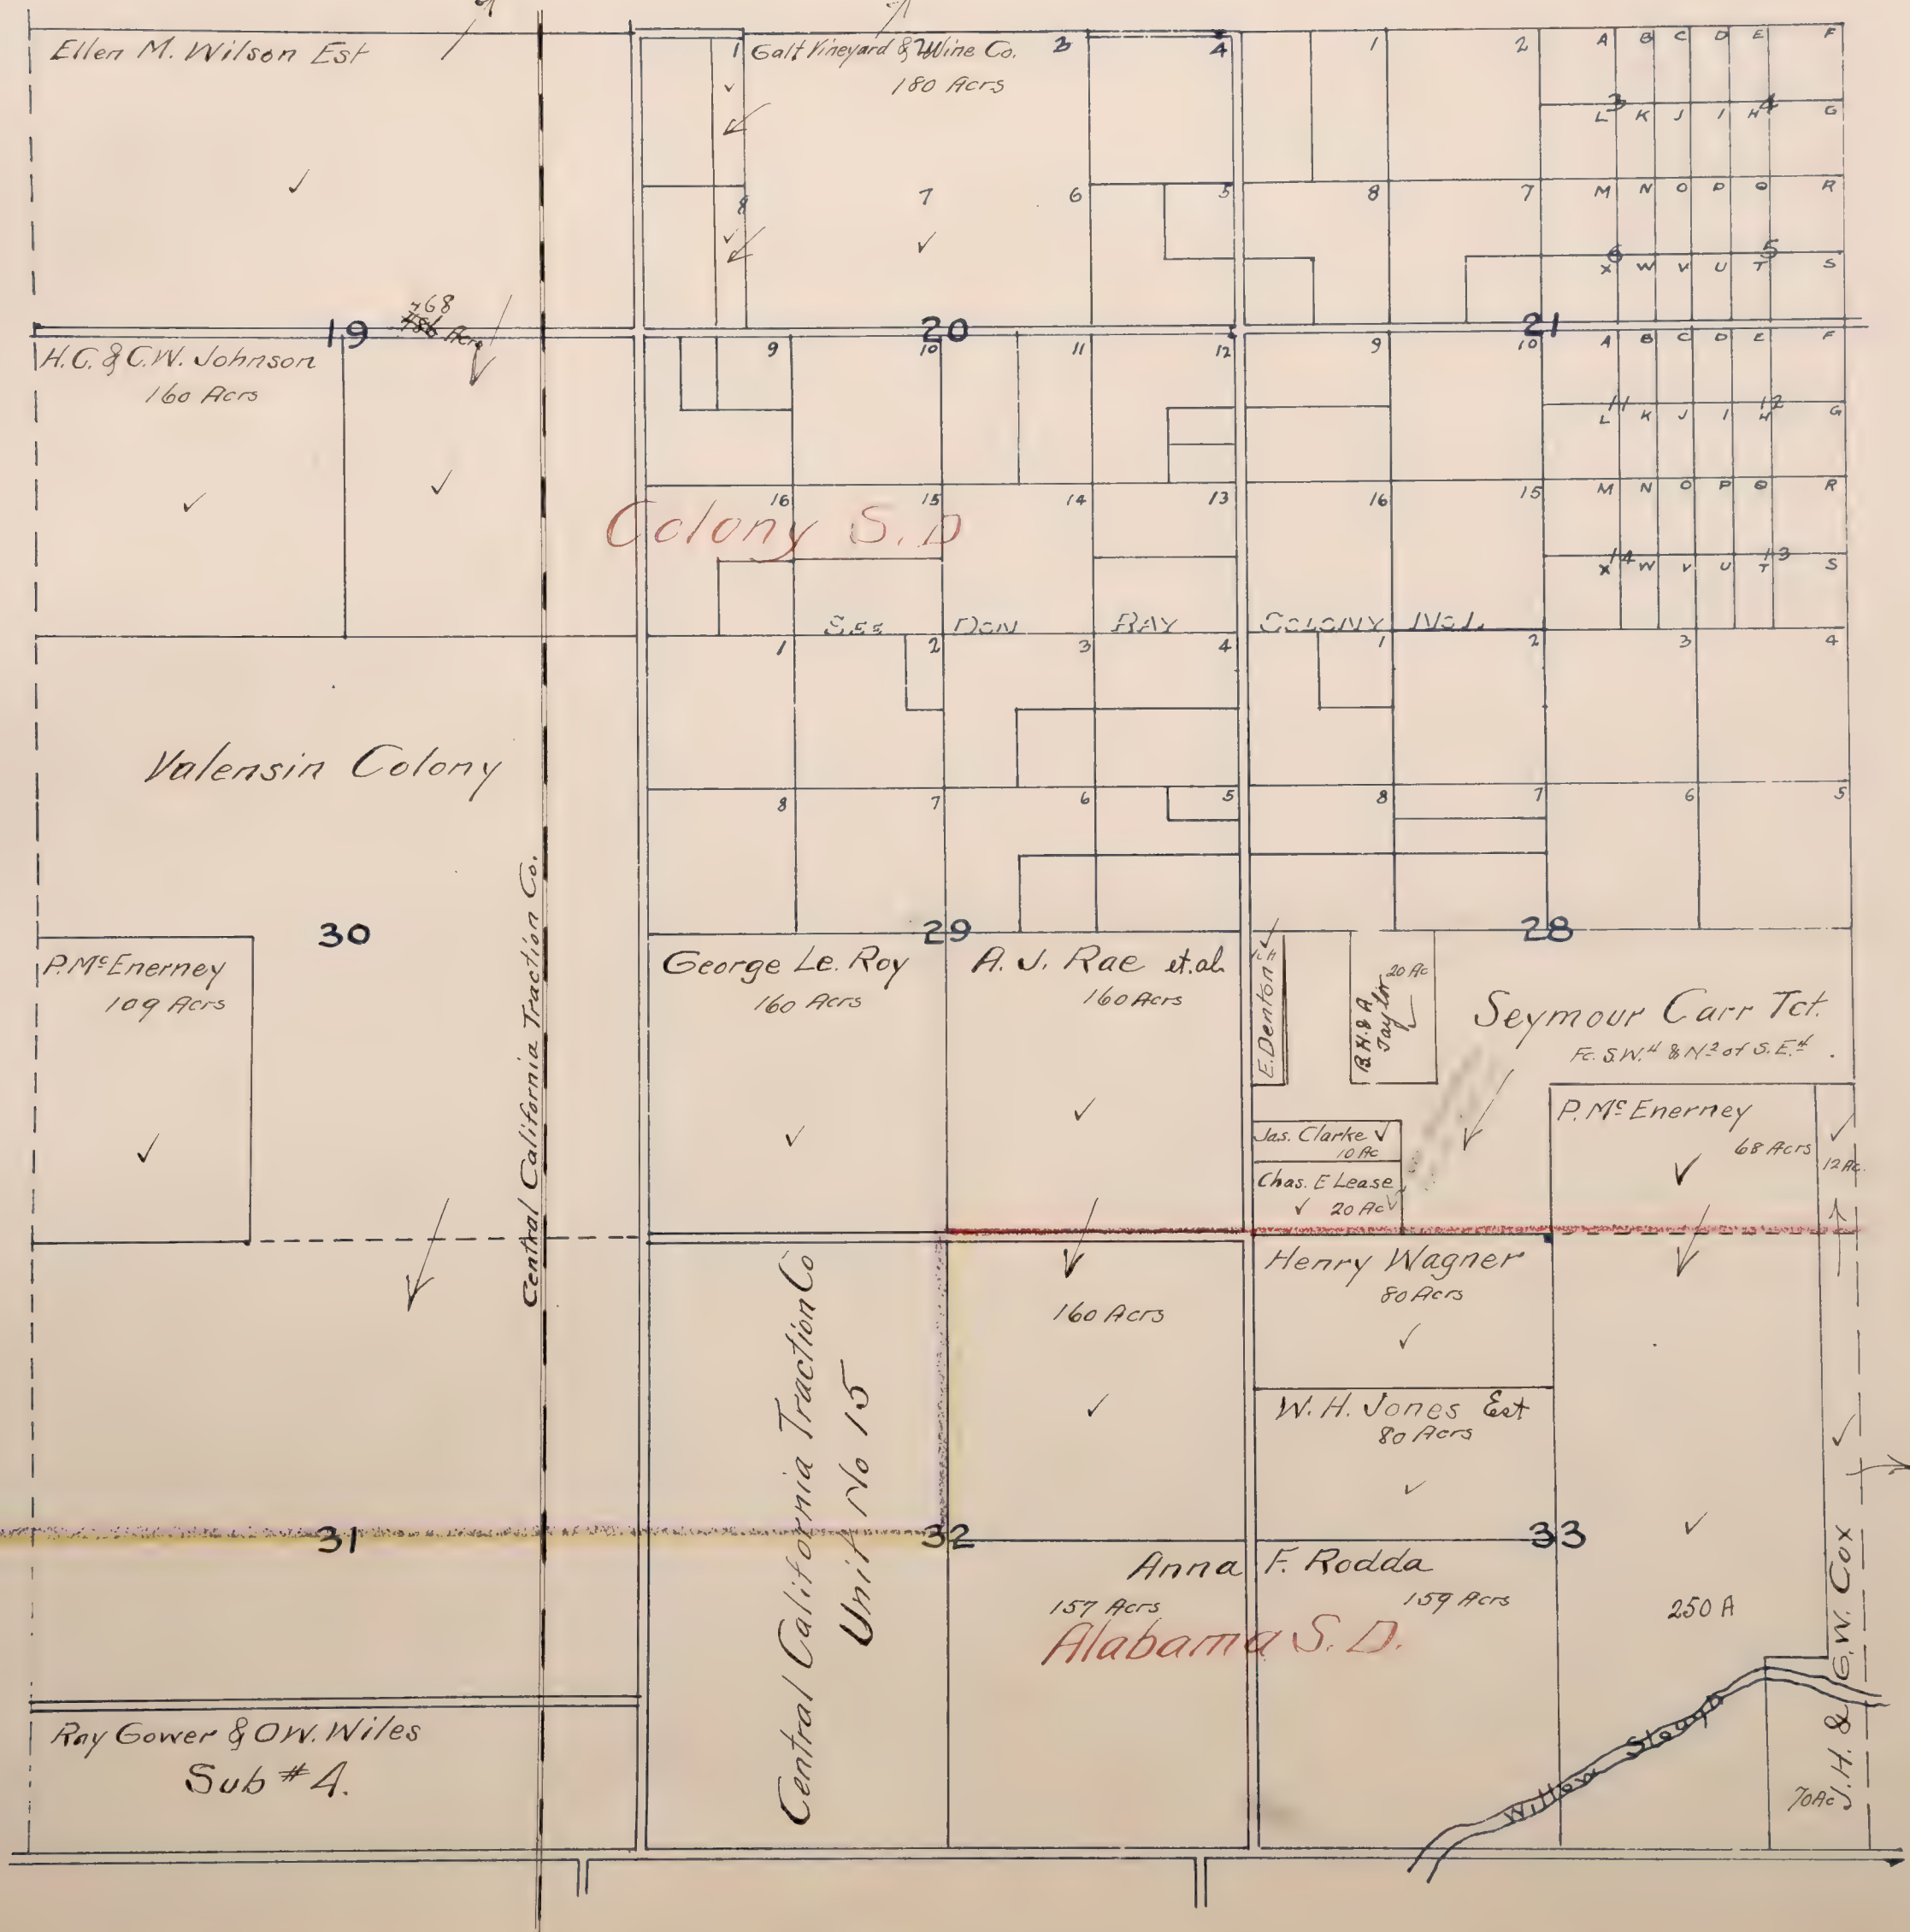 Ellen M. Wilson Est
1 Galt Vineyard & Wine Co. 3 4
180 Acrs
8 7 6 5
1 2 A B C D E F
3 4
L K J I H G
8 7 M N O P Q R
6 5
X W V U T S
19
768
20
21
H.C. & C.W. Johnson
160 Acrs
9 10 11 12
9 10 A B C D E F
11 12
L K J I H G
16 15 14 13
16 15 M N O P Q R
14 13
X W V U T S
Colony S. D
See Don Ray Colony No 1.
1 2 3 4
1 2 3 4
Valensin Colony
8 7 6 5
8 7 6 5
30
29
28
Central California Traction Co.
P. Mc Enerney
109 Acrs
George Le. Roy
160 Acrs
A. J. Rae et. al.
160 Acrs
E. Denton
B. H. & A
Taylor
20 Ac
Seymour Carr Tct.
Fc. S.W.4 & N2 of S.E.4
Jas. Clarke
10 Ac
Chas. E Lease
20 Ac
P. Mc Enerney
68 Acrs
12 Ac.
Central California Traction Co
Unit No 15
160 Acrs
Henry Wagner
80 Acrs
W. H. Jones Est
80 Acrs
31
32
33
Anna F. Rodda
157 Acrs
159 Acrs
250 A
Alabama S. D.
Ray Gower & O.W. Wiles
Sub # 4.
Willow Slough
70 Ac
J. H. & G. W. Cox